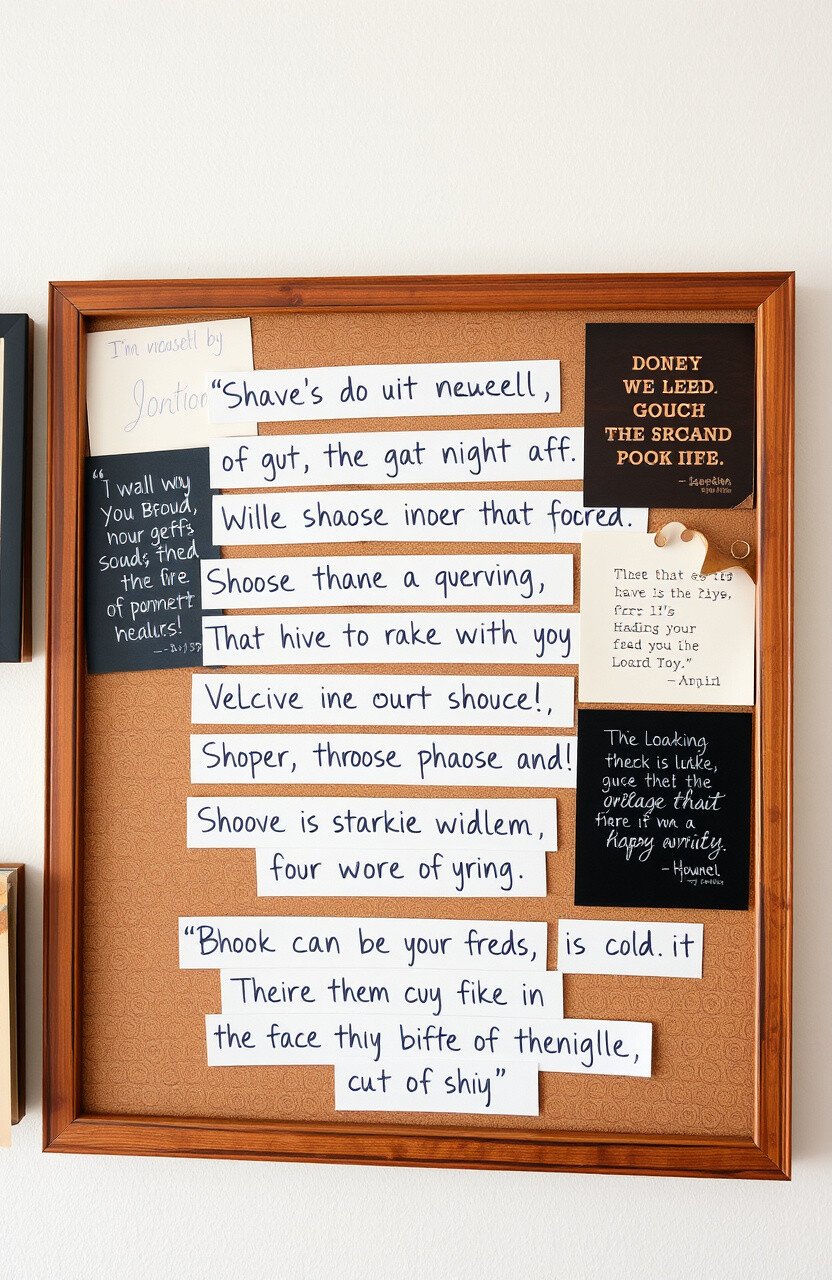 I'm vicusetl by
Jontion
"Shave's do uit neueell,
of gut, the gat night aff.
Wille shaose inoer that focred.
Shoose thane a querving,
That hive to rake with yoy
Velcive ine ourt shouce!,
Shoper, throose phaose and!
Shoove is starkie widlem,
four wore of yring.
"Bhook can be your freds, is cold. it
Theire them cuy fike in
the face thiy bifte of theniglle,
cut of shiy"
"I wall wiy
you Broud,
nour geffs
souds, thed
the fire
of pomnett
healurs!
DONEY
WE LEED.
GOUCH
THE SRCAND
POOK IIFE.
Thee that
have is the Piys,
Forr 1I's
Hading your
fead you the
Loard Toy."
– Anpiil
The Loaking
theck is luke,
guce thet the
orilage thait
fiare if wn a
Happy avrrity.
– Hownel